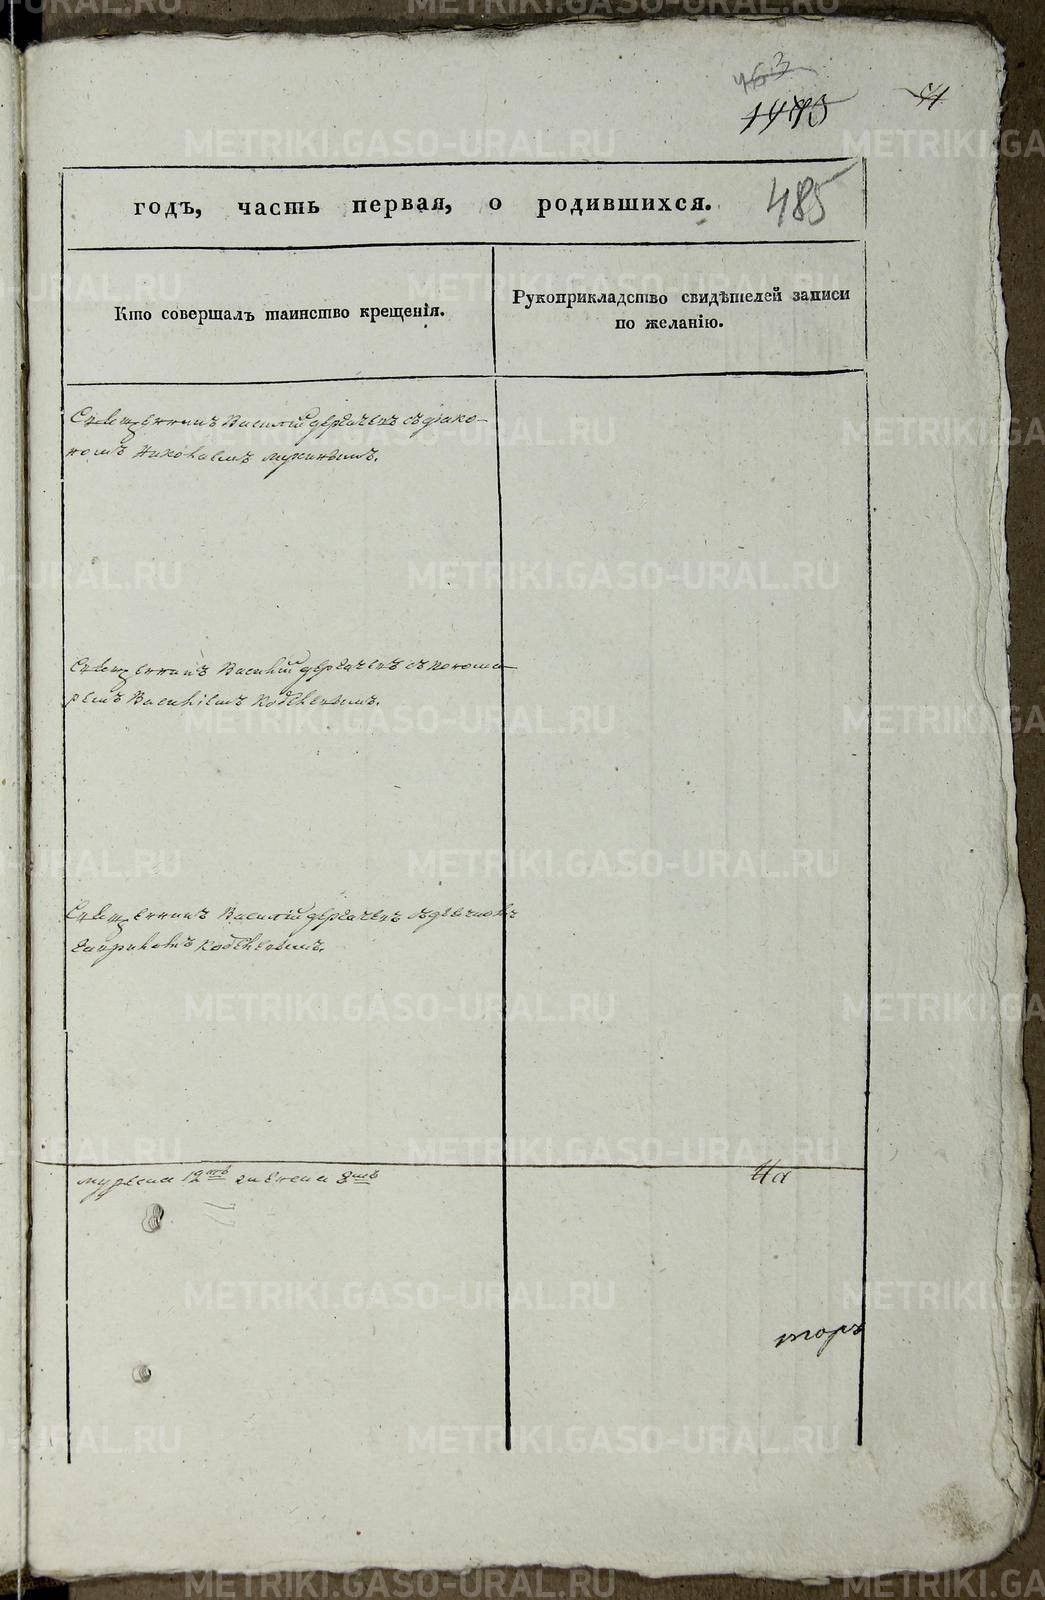 463
1475
41
485
годъ, часть первая, о родившихся.
Кто совершалъ таинство крещенія.
Рукоприкладство свидѣтелей записи
по желанію.
Священникъ Василій дергачевъ съ діако-
номъ Николаемъ
Священникъ Василій дергачевъ съ понома
ремъ Василіемъ Кобелевымъ.
Священникъ Василій дергачевъ съ дьячковъ
Кобелевымъ.
мужеска 12ть женска 8мь
На
торъ
METRIKI.GASO-URAL.RU